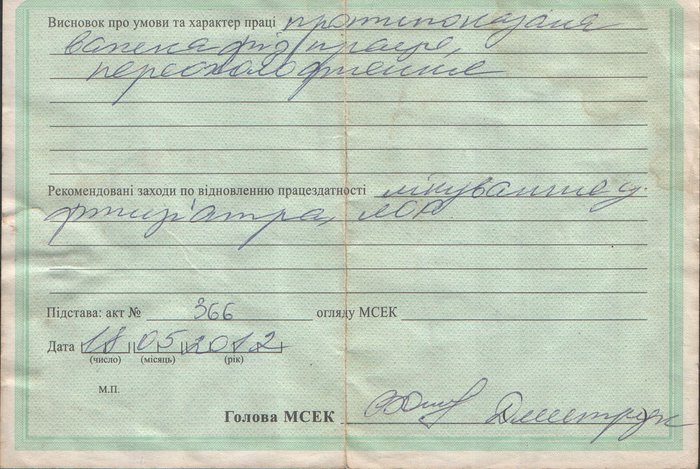 Висновок про умови та характер праці протипоказана
важка фіз праця,
переохолодження
Рекомендовані заходи по відновленню працездатності лікування у
фтизіатра, ЛОР
Підстава: акт № 366 огляду МСЕК
Дата 18 05 2012
(число) (місяць) (рік)
М.П.
Голова МСЕК Дмитрук